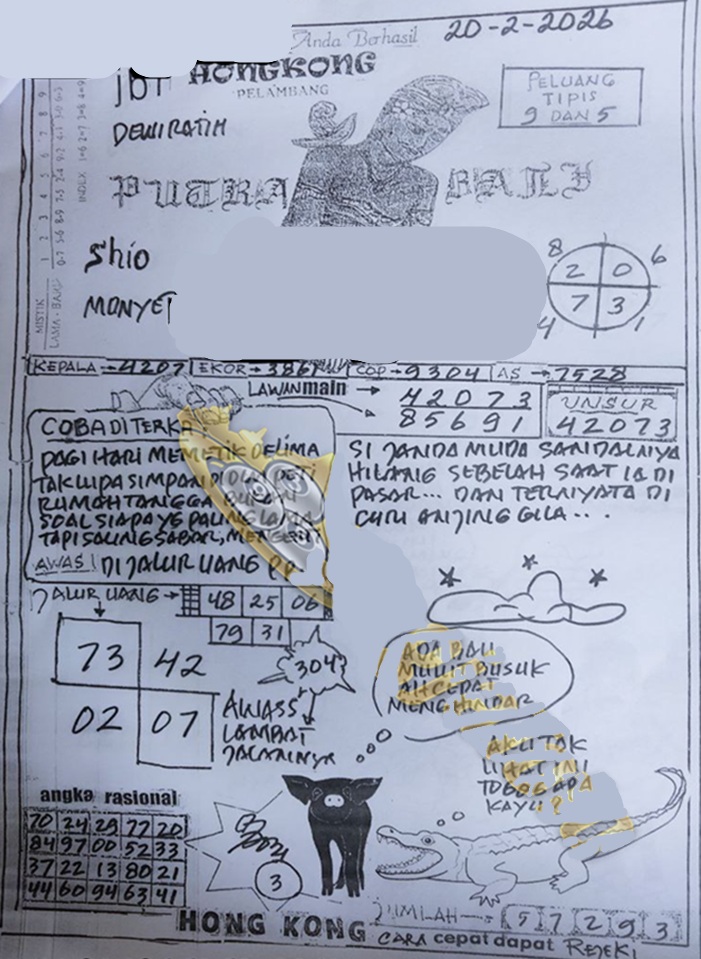 Anda Berhasil 20-2-2026
HONGKONG
PELAMBANG
DEWIRATIH
PELUANG
TIPIS
9 DAN 5
PUTRA BALI
Shio
MONYET
MISTIK
LAMA - BARU
INDEX
8 6
2 0
7 3
4 1
KEPALA → 4207 EKOR → 3861 COP → 9304 AS → 7528
LAWAN main → 42073
85691
UNSUR
42073
COBA DITERKA
PAGI HARI MEMETIK DELIMA
TAK LUPA SIMPAN DI DLM PETI
RUMAH TANGGA BUKAN
SOAL SIAPA YG PALING LAMA
TAPI SALING SABAR, MENGERTI
AWAS! DI JALUR UANG
SI JANDA MUDA SANDALNYA
HILANG SEBELAH SAAT IA DI
PASAR... DAN TERNYATA DI
CURI ANJING GILA...
JALUR UANG → 48 25 06
79 31
73 42
02 07
304
AWASS
LAMBAT
JALANINYA
ADA BAU
MULUT BUSUK
AH CEPAT
MENGHINDAR
AKU TAK
LIHAT INI
KAYU?
angka rasional
70 24 29 77 20
84 97 00 52 33
37 22 13 80 21
44 60 94 63 41
3
HONG KONG
JUMLAH → 5 7 2 9 3
CARA cepat dapat REJEKI